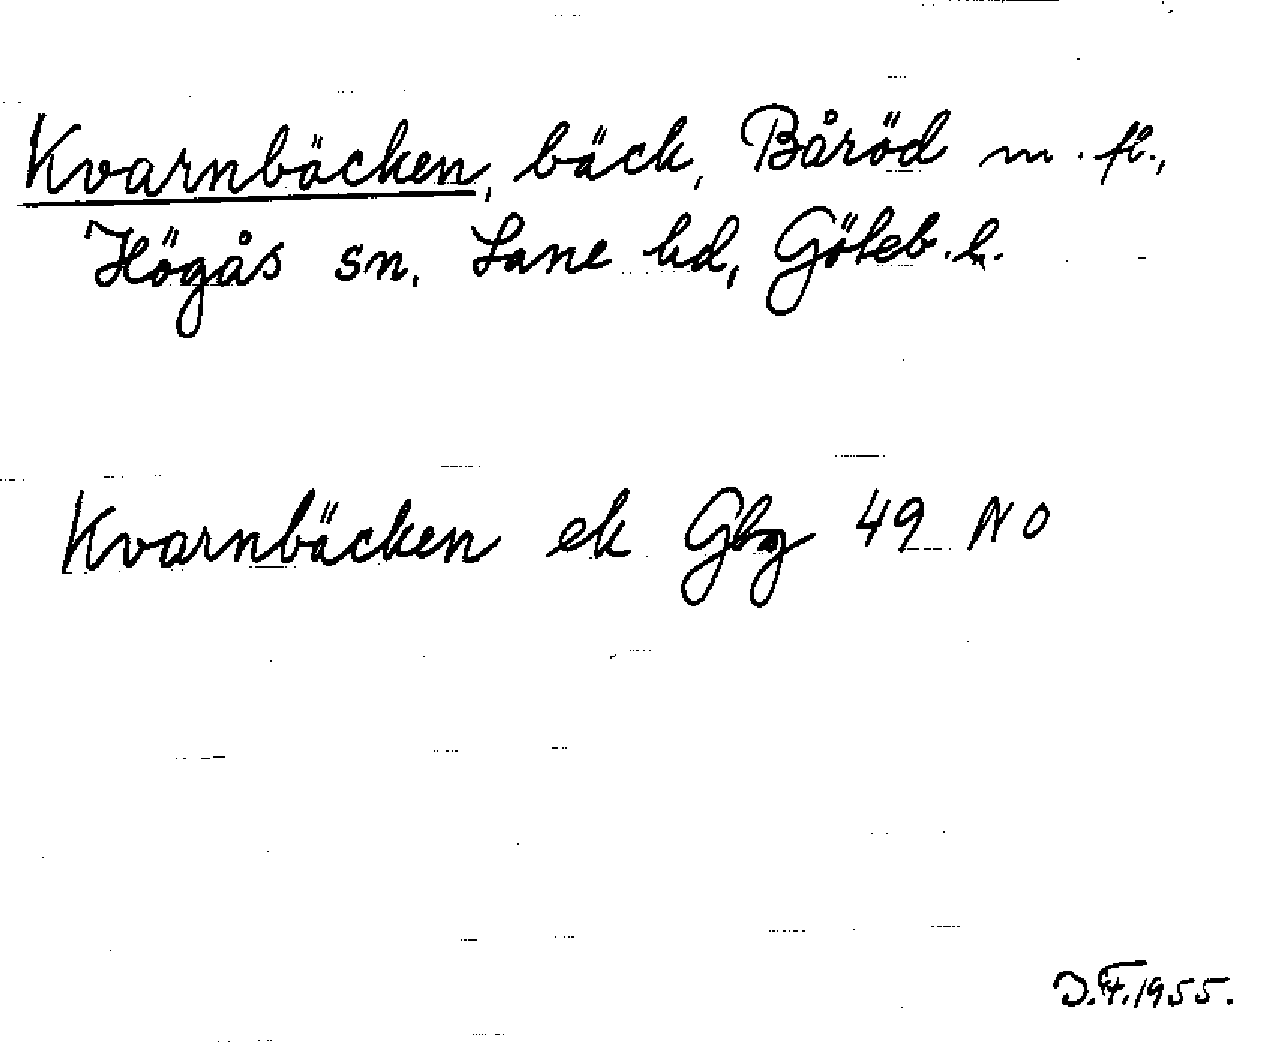 Kvarnbäcken, bäck, Båröd m. fl.,
Högås sn, Lane hd, Göteb. l.
Kvarnbäcken ek Gbg 49 NO
J.F.1955.